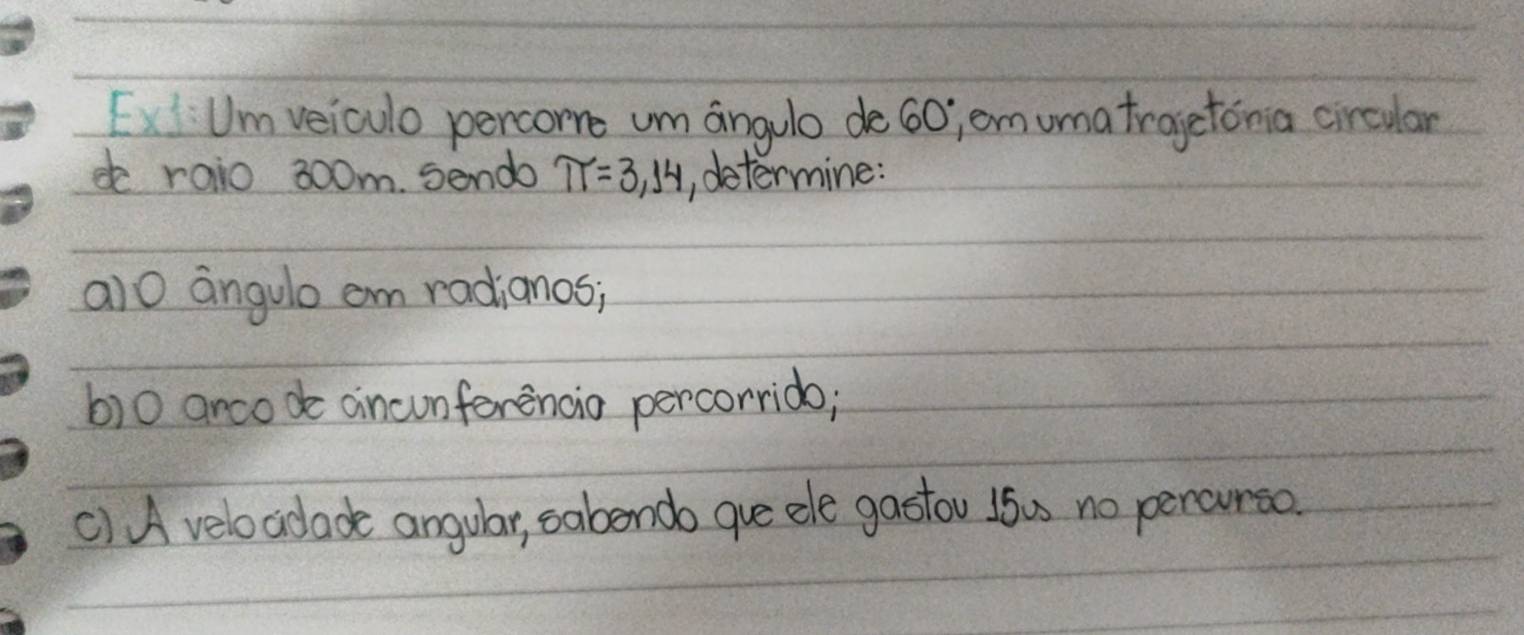 Ex1: Um veículo percorre um ângulo de 60°, em uma trajetória circular
de raio 300m. Sendo π=3,14, determine:
a) O ângulo em radianos;
b) O arco de circunferência percorrido;
c) A velocidade angular, sabendo que ele gastou 15s no percurso.